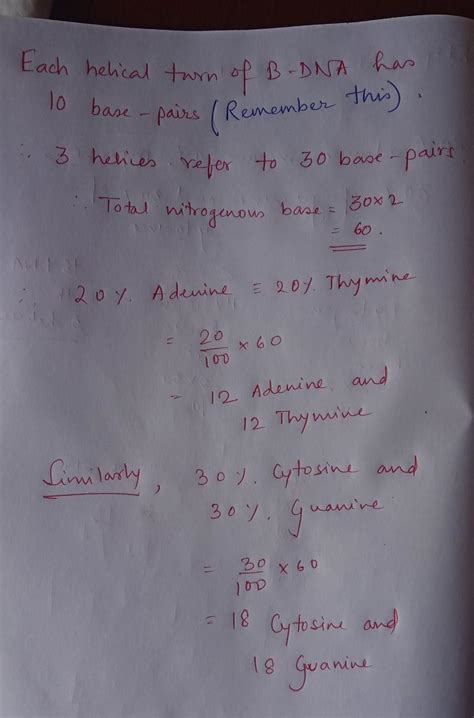 Each helical turn of B-DNA has
10 base-pairs (Remember this).
∴ 3 helices refer to 30 base-pairs
∴ Total nitrogenous base = 30×2
= 60.
∴ 20%. Adenine ≡ 20%. Thymine
= 20/100 × 60
= 12 Adenine and
12 Thymine
Similarly, 30%. Cytosine and
30%. Guanine
= 30/100 × 60
= 18 Cytosine and
18 Guanine